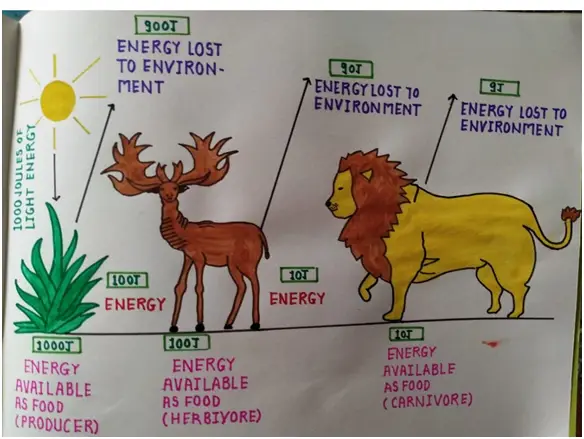 900J
ENERGY LOST
TO ENVIRON-
MENT
90J
ENERGY LOST TO
ENVIRONMENT
9J
ENERGY LOST TO
ENVIRONMENT
1000 JOULES OF
LIGHT ENERGY
100J
ENERGY
10J
ENERGY
1000J
ENERGY
AVAILABLE
AS FOOD
(PRODUCER)
100J
ENERGY
AVAILABLE
AS FOOD
(HERBIVORE)
10J
ENERGY
AVAILABLE
AS FOOD
(CARNIVORE)